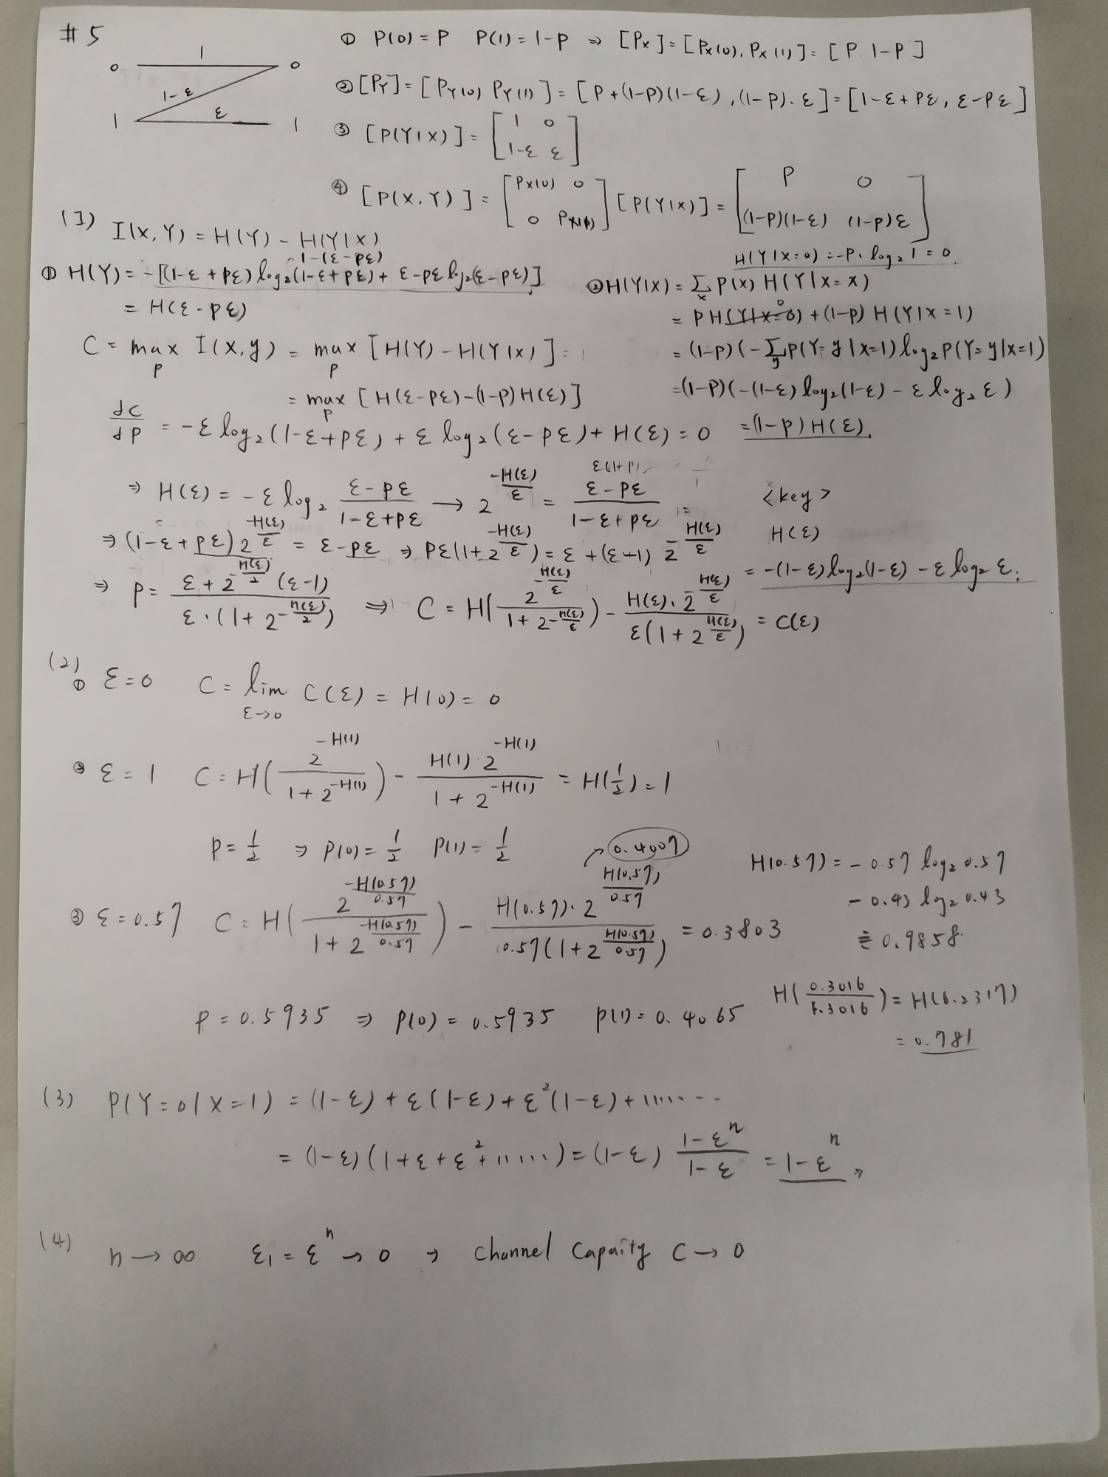 #5
0 1 0
1-ε
1 ε 1
① P(0)=P P(1)=1-P ⇒ [Px]=[Px(0), Px(1)]=[P 1-P]
② [PY]=[PY(0), PY(1)]=[P+(1-P)(1-ε), (1-P)·ε]=[1-ε+Pε, ε-Pε]
③ [P(Y|X)]=[1 0
1-ε ε]
④ [P(X,Y)]=[Px(0) 0
0 Px(1)] [P(Y|X)]=[P 0
(1-P)(1-ε) (1-P)ε]
(1) I(X,Y)=H(Y)-H(Y|X)
1-(ε-Pε)
① H(Y)=-[(1-ε+Pε)log₂(1-ε+Pε)+ε-Pε log₂(ε-Pε)]
=H(ε-Pε)
H(Y|X=0)=-P·log₂1=0.
② H(Y|X)=∑x P(x) H(Y|X=x)
=P H(Y|X=0)+(1-P) H(Y|X=1)
=(1-P)(-∑y P(Y=y|X=1)log₂P(Y=y|X=1)
=(1-P)(-(1-ε)log₂(1-ε)-ε log₂ε)
=(1-P)H(ε).
C=max P I(X,y)=max P [H(Y)-H(Y|X)]=
=max P [H(ε-Pε)-(1-P)H(ε)]
dC/dP=-ε log₂(1-ε+Pε)+ε log₂(ε-Pε)+H(ε)=0
⇒ H(ε)=-ε log₂ (ε-Pε)/(1-ε+Pε) → 2^(-H(ε)/ε)=(ε-Pε)/(1-ε+Pε)
⇒ (1-ε+Pε)2^(-H(ε)/ε)=ε-Pε ⇒ Pε(1+2^(-H(ε)/ε))=ε+(ε-1)2^(-H(ε)/ε)
<key>
H(ε)
=-(1-ε)log₂(1-ε)-ε log₂ε.
⇒ P=(ε+2^(-H(ε)/2)(ε-1))/(ε·(1+2^(-H(ε)/2))) ⇒ C=H(2^(-H(ε)/ε)/(1+2^(-H(ε)/ε)))-(H(ε)·2^(-H(ε)/ε))/(ε(1+2^(H(ε)/ε)))=C(ε)
(2)
① ε=0 C=lim ε→0 C(ε)=H(0)=0
② ε=1 C=H(2^(-H(1))/(1+2^(-H(1))))-(H(1)·2^(-H(1)))/(1+2^(-H(1)))=H(1/2)=1
P=1/2 ⇒ P(0)=1/2 P(1)=1/2
0.4007
③ ε=0.57 C=H(2^(-H(0.57)/0.57)/(1+2^(-H(0.57)/0.57)))-(H(0.57)·2^(H(0.57)/0.57))/(0.57(1+2^(H(0.57)/0.57)))=0.3803
H(0.57)=-0.57 log₂0.57
-0.43 log₂0.43
≒0.9858
P=0.5935 ⇒ P(0)=0.5935 P(1)=0.4065
H(0.3016/1.3016)=H(0.2317)
=0.781
(3) P(Y=0|X=1)=(1-ε)+ε(1-ε)+ε²(1-ε)+······
=(1-ε)(1+ε+ε²+·····)=(1-ε) (1-εⁿ)/(1-ε)=1-εⁿ
(4) n→∞ ε₁=εⁿ→0 ⇒ Channel Capaity C→0